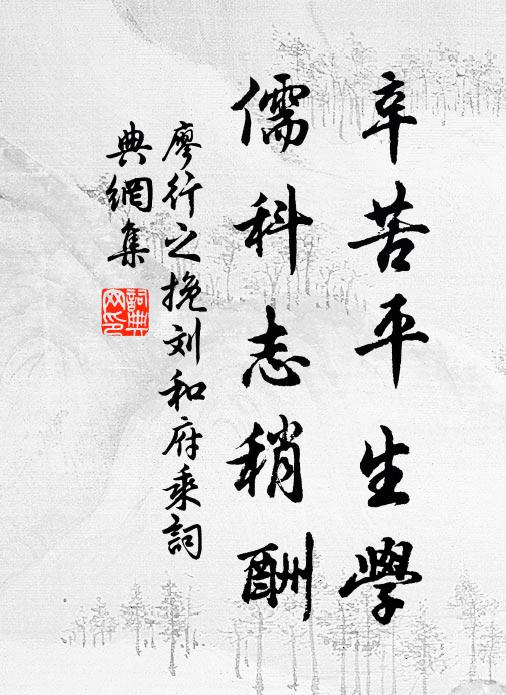 辛苦平生學
儒科志稍酬
廖行之挽刘和府乘詞
典網集
詞典网印